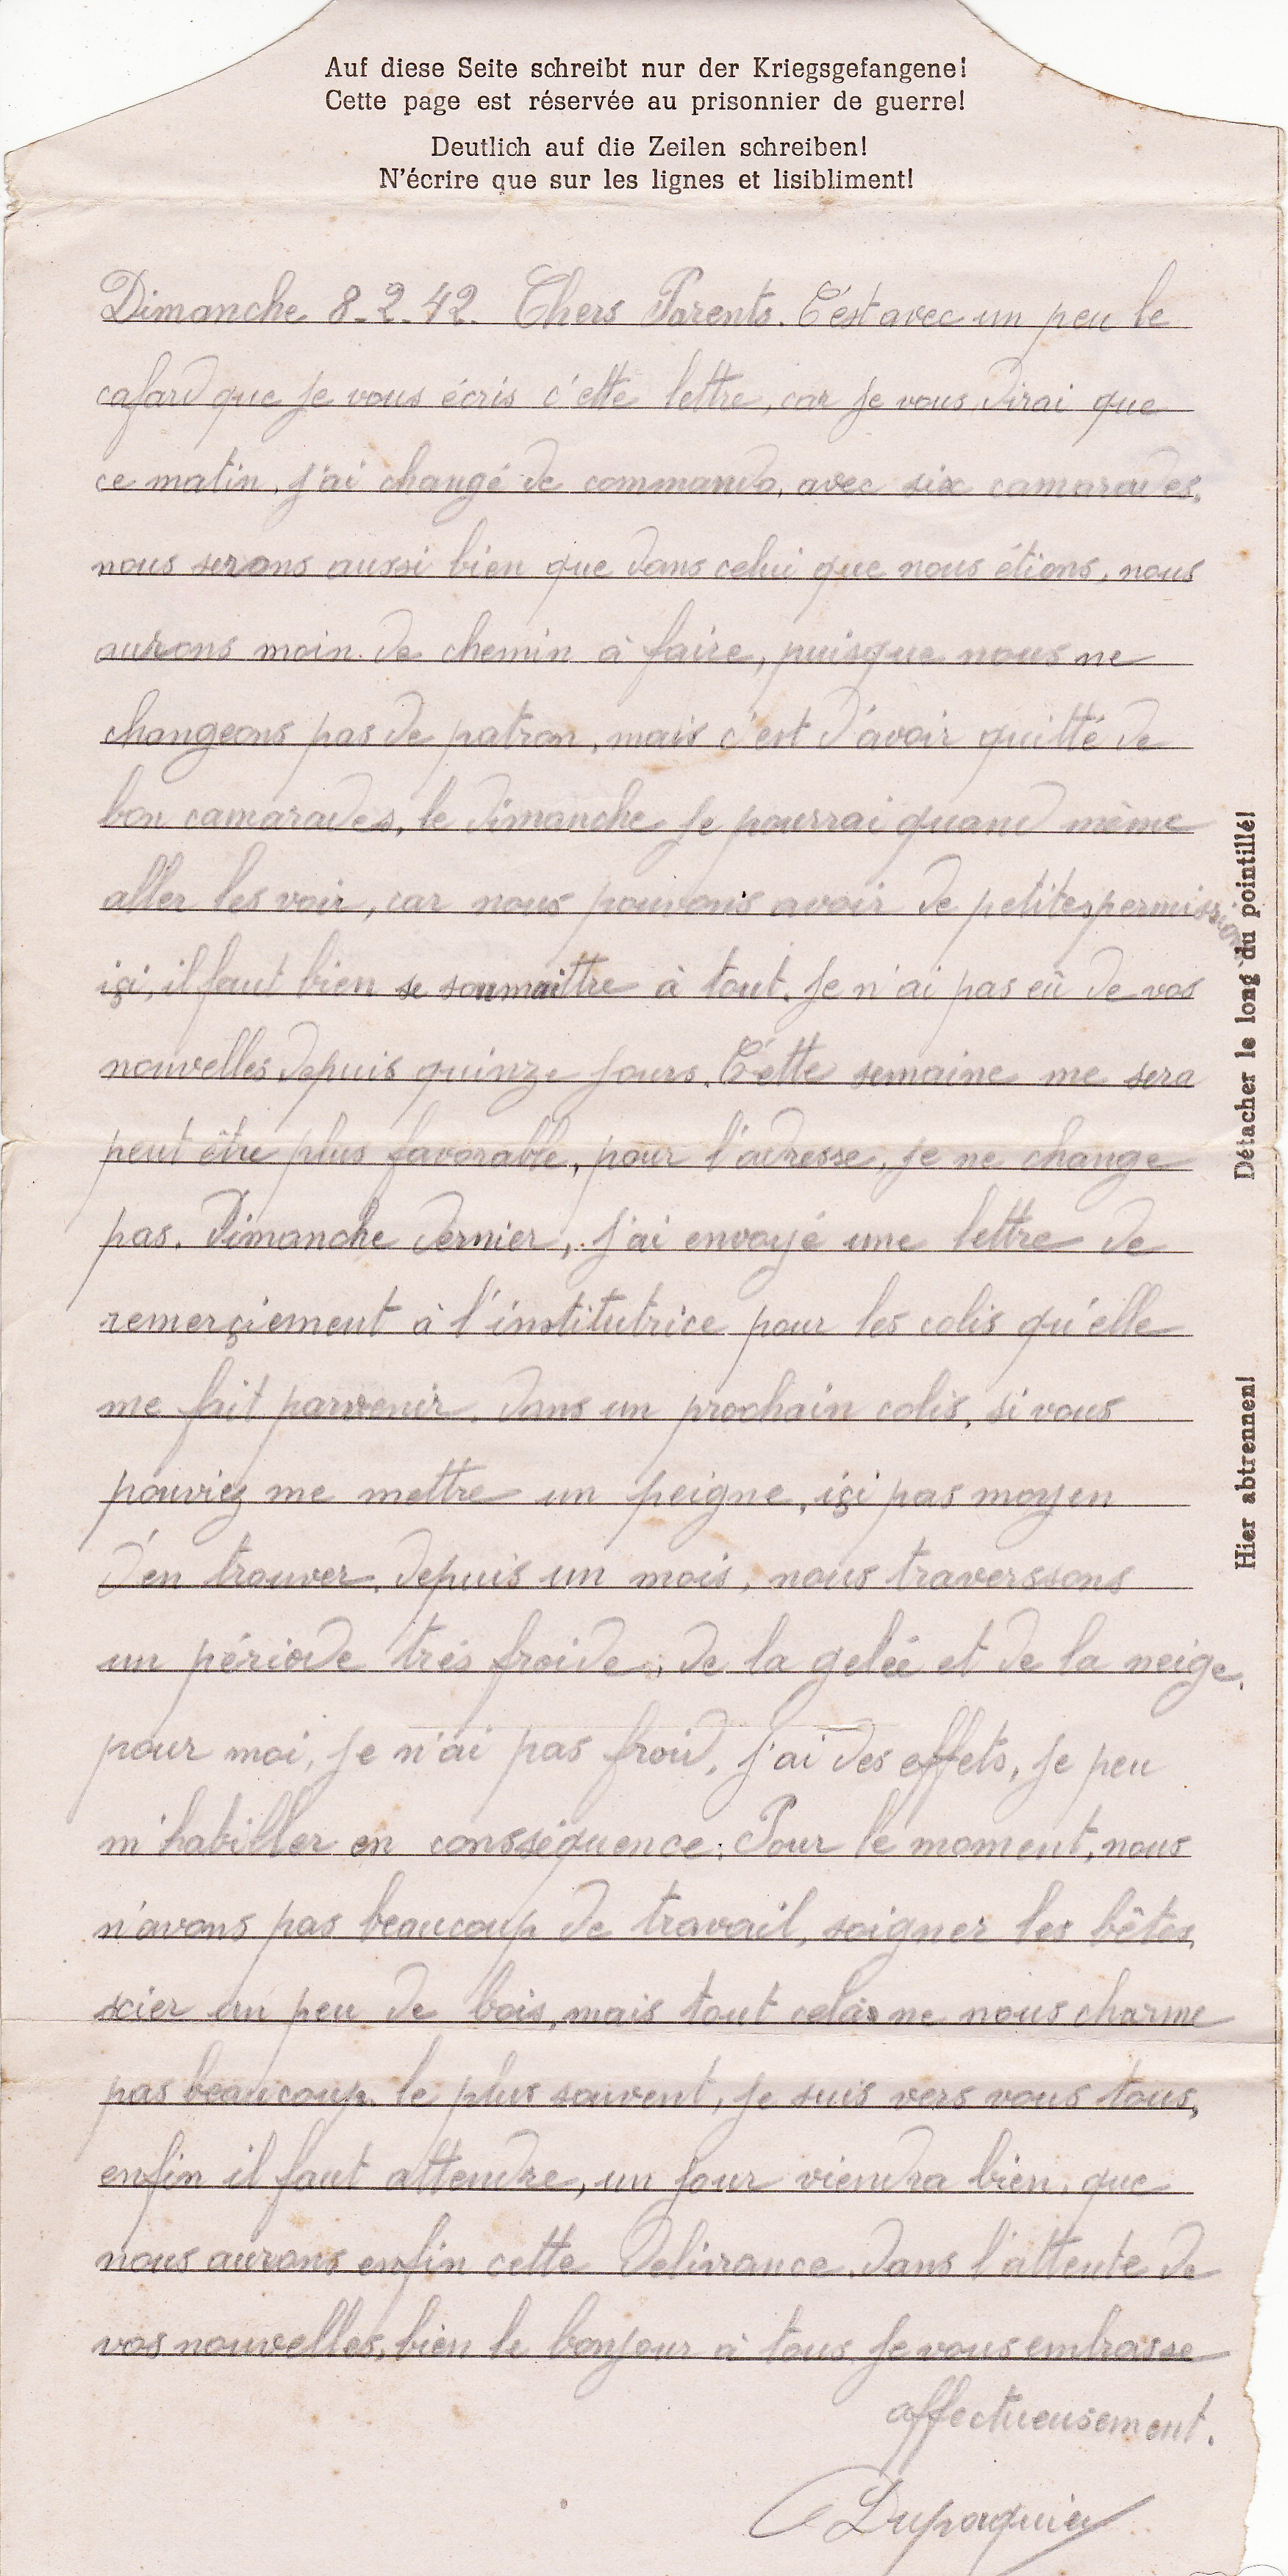 Auf diese Seite schreibt nur der Kriegsgefangene!
Cette page est réservée au prisonnier de guerre!
Deutlich auf die Zeilen schreiben!
N'écrire que sur les lignes et lisibliment!
Dimanche 8-2-42. Chers Parents. C'est avec un peu le
cafard que je vous écris c'ette lettre, car je vous dirai que
ce matin, j'ai changé de commando, avec six camarades,
nous serons aussi bien que dans celui que nous étions, nous
aurons moin de chemin à faire, puisque nous ne
changeons pas de patron, mais c'est d'avoir quitté de
bon camarades, le dimanche je pourrai quand même
aller les voir, car nous pouvons avoir de petites permissions
içi, il faut bien se soumaittre à tout. Je n'ai pas eû de vos
nouvelles depuis quinze jours. C'ette semaine me sera
peut être plus favorable, pour l'adresse, je ne change
pas. Dimanche dernier, j'ai envoyé une lettre de
remerçiement à l'institutrice pour les colis qu'elle
me fait parvenir. dans un prochain colis, si vous
pouviez me mettre un peigne, içi pas moyen
d'en trouver. depuis un mois, nous traverssons
un période trés froide, de la gelée et de la neige.
pour moi, je n'ai pas froid, j'ai des effets, je peu
m'habiller en consséquence. Pour le moment, nous
n'avons pas beaucoup de travail, soigner les bêtes,
scier un peu de bois, mais tout celà ne nous charme
pas beaucoup, le plus souvent, je suis vers vous tous,
enfin il faut attendre, un jour viendra bien, que
nous aurons enfin cette delivrance. dans l'attente de
vos nouvelles, bien le bonjour à tous. Je vous embrasse
affectueusement.
Dupaquier
Détacher le long du pointillé!
Hier abtrennen!